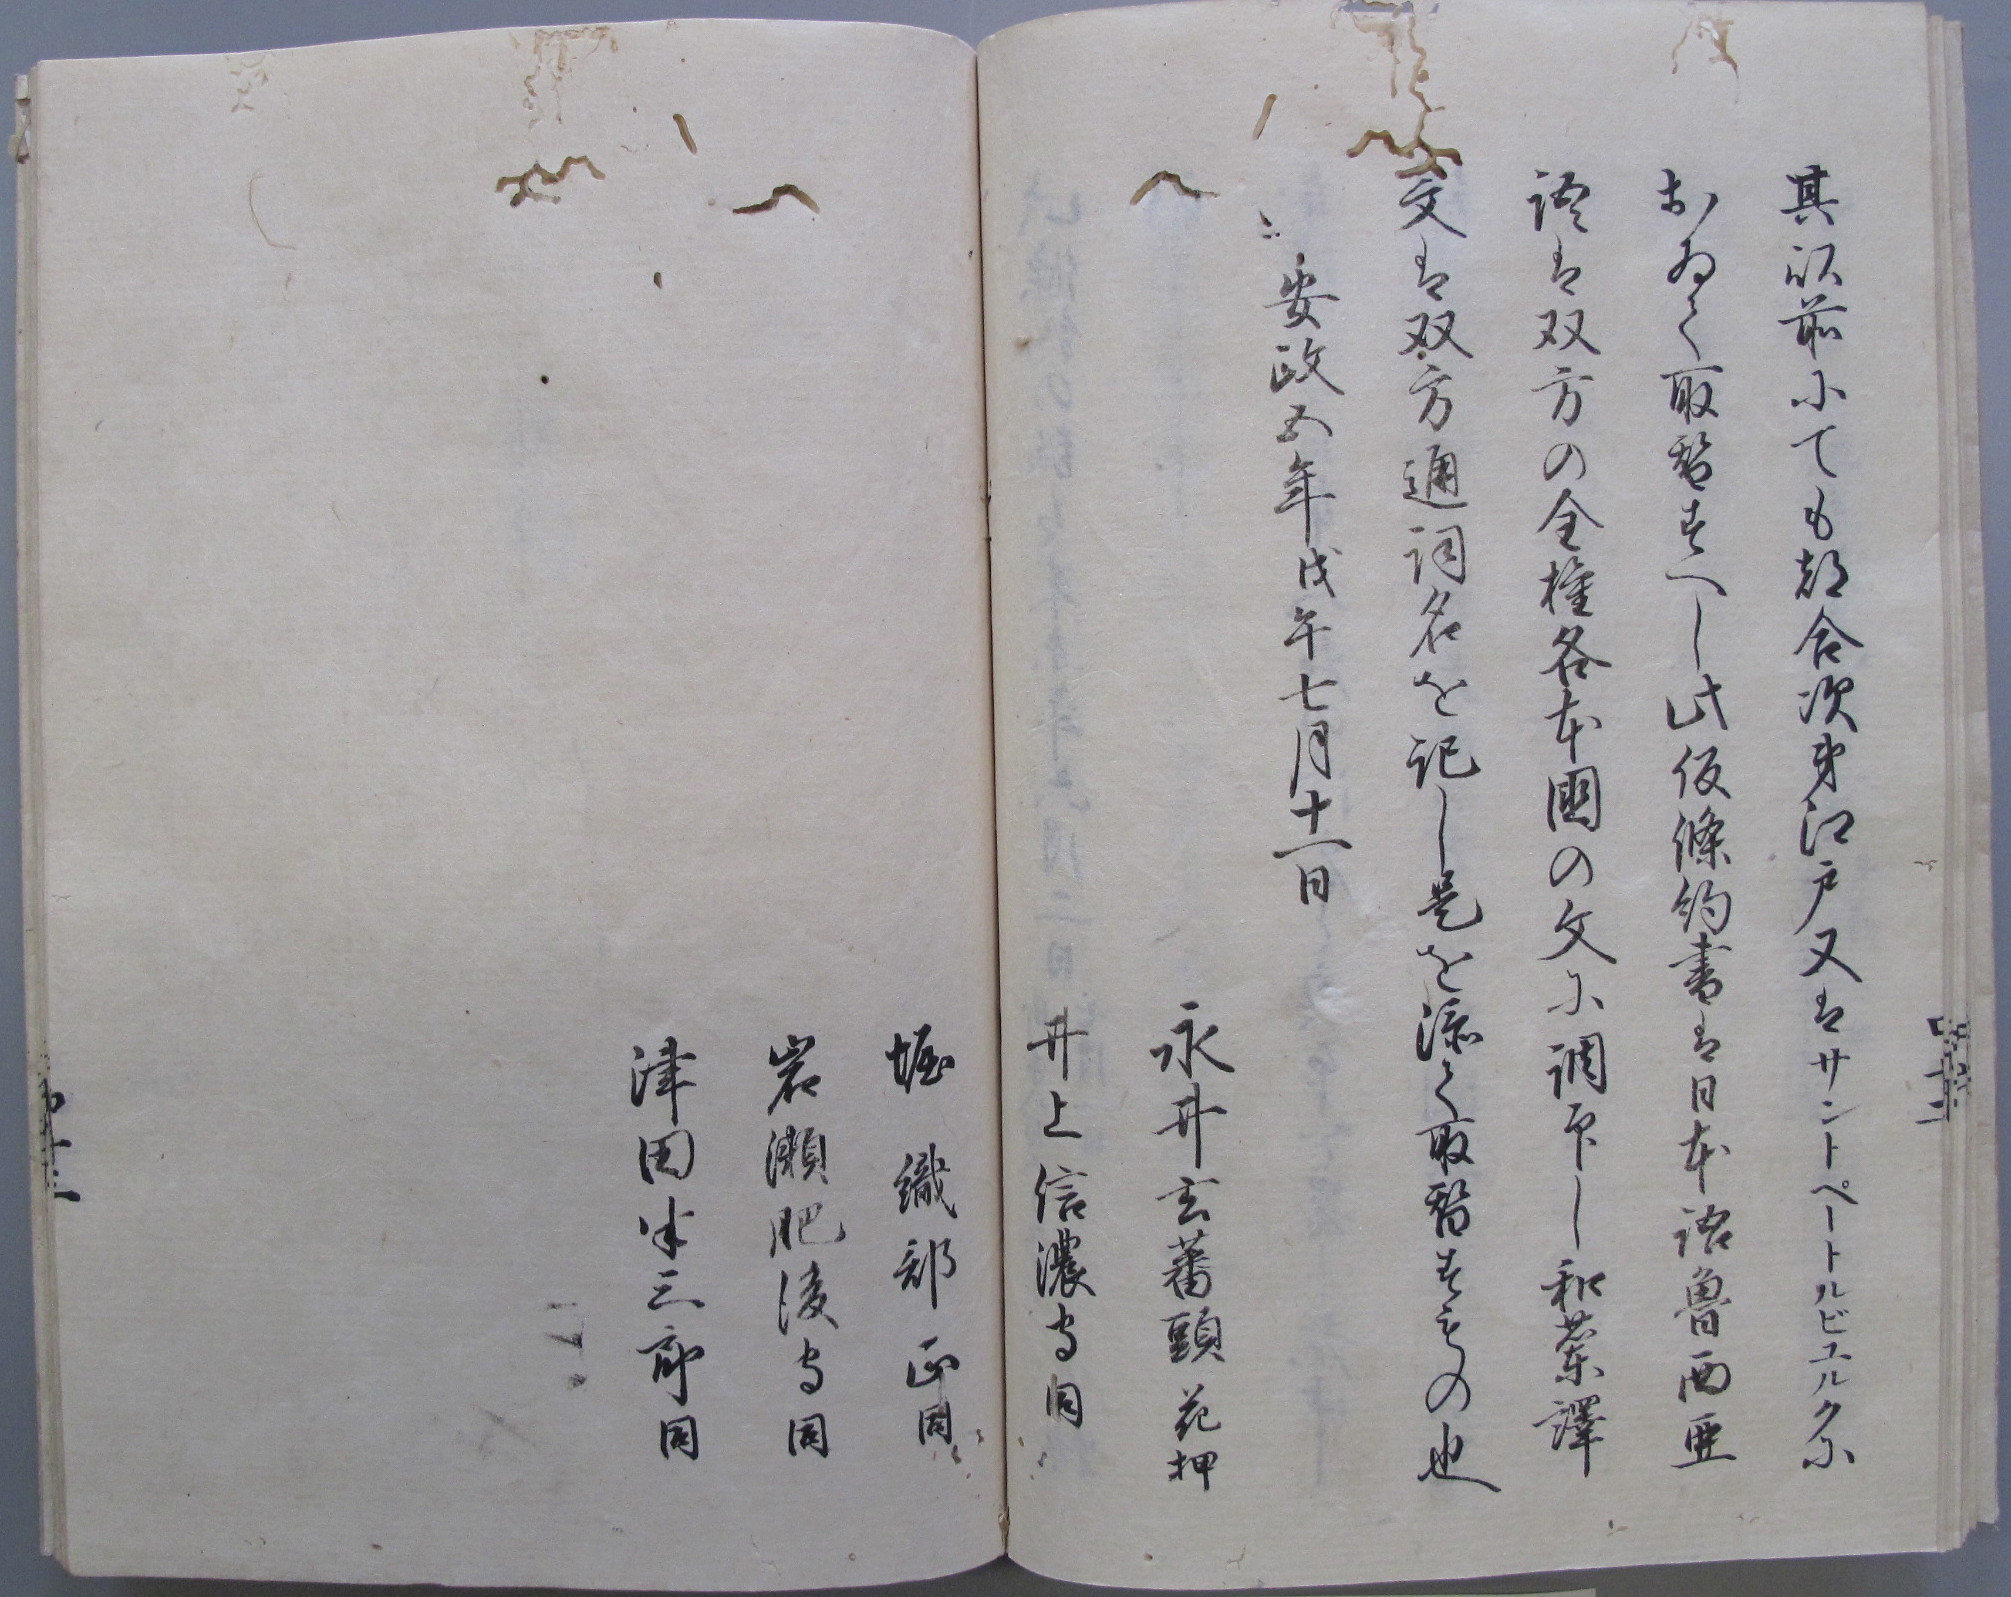 其以前にても都合次第江戸又はサントペートルビユルクに
おゐて取替すへし此仮條約書は日本語魯西亜
語は双方の全権各本國の文に調印し和蘭譯
文は双方通詞名を記し是を添て取替すもの也
安政五年戊午七月十一日
永井玄蕃頭花押
井上信濃守同
堀織部正同
岩瀬肥後守同
津田半三郎同